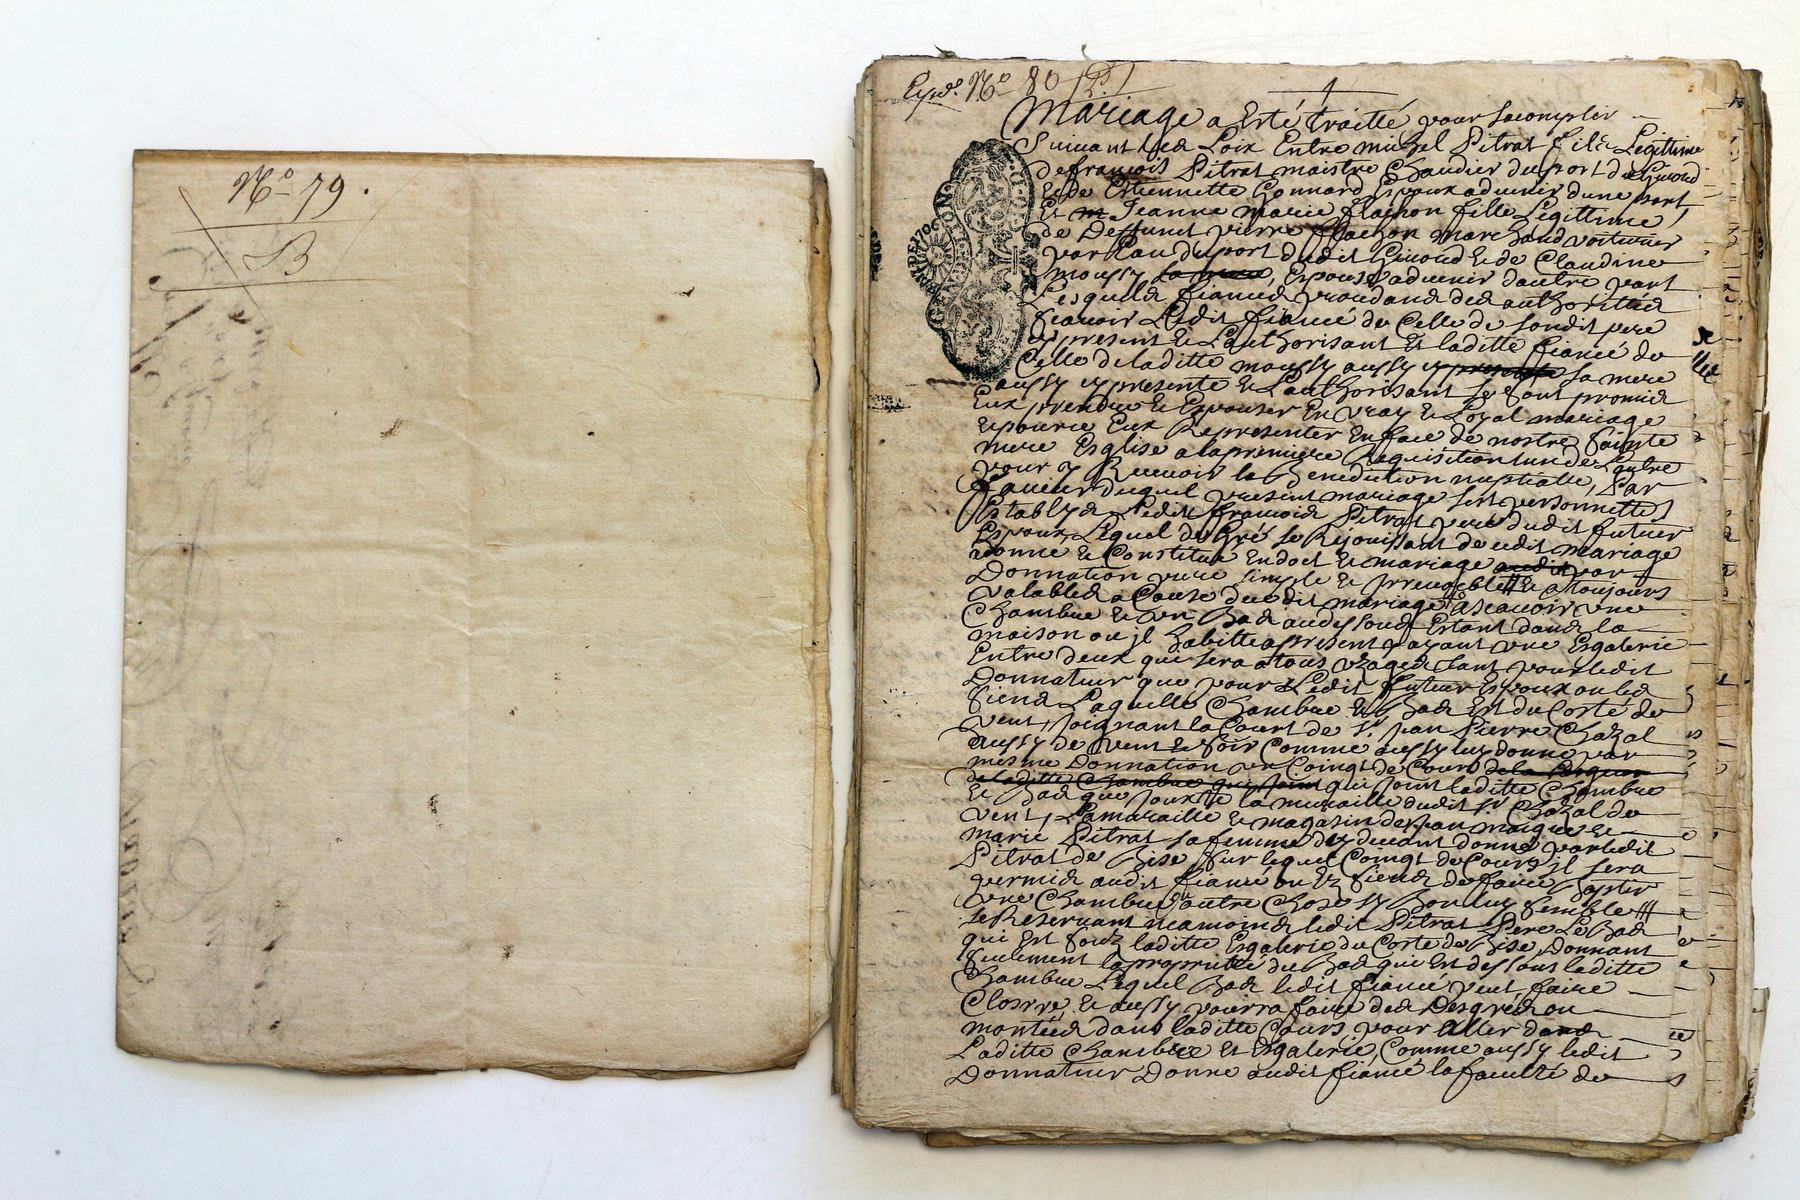 No 79.
B
Expd. No 80
Mariage a Esté traitté pour sacomplir
Suivant Les Loix Entre michel Pitrat fils Legittime
de françois Pitrat maistre Chaudier du port de Givord
Et de Estiennette Gonnard Epoux aduenir dune part
Et Jeanne marie flachon fille Legittime
de Deffunct pierre flachon marchand voiturier
par Eau du port dudit Givord Et de Claudine
moussy la mere, Epouse aduenir dautre part
Lesquels fiancés procedans des authorittés
sçavoir Ledit fiancé de Celle de sondit pere
cy present Et Lauthorisant Et laditte fiancé de
Celle de laditte moussy aussy cy presente sa mere
aussy cy presente Et Lauthorisant se sont promis
Eux prendre Et Epouser En vray Et Loyal mariage
Et pource Eux Representer En face de nostre sainte
mere Esglise a la premiere Requisition lun de Lautre
pour y Recevoir la Benediction nuptialle, Par
faveur duquel present mariage sest personnellet
Establys Ledit françois Pitrat pere dudit futur
Espoux, Lequel de Gré se Rejouissant de cedit mariage
a donné Et Constitué En dot Et mariage audit par
Donnation pure simple Et irrevocable Et a toujours
valables a Cause dudit mariage Asscavoir une
Chambre Et un Bas au dessous Estant dans la
maison ou jl habitte apresent y ayant une Esgalerie
Entre deux qui sera a tous usages tant pour ledit
Donnateur que pour Ledit futeur Espoux ou les
siens Laquelle Chambre Et Bas Est du Costé de
vent, joignant la Court de Sr. Jean Pierre Chazal
aussy de vent Et soir Comme aussy luy donne par
mesme Donnation un Coingt de Cours de la
de laditte Chambre qui joint qui joint laditte Chambre
Et Bas que jouxte la muraille dudit Sr. Chazal de
vent, La muraille Et magasin de Jean
marie Pitrat sa femme cy devant donné par ledit
Pitrat de Bise sur lequel Coingt de Cours il sera
permis audit fiancé ou Es siens de faire Bastir
une Chambre autre Chose sy Bon luy semble
se Reservant neamoins ledit Pitrat Pere Le Bas
qui Est soubz laditte Esgalerie du Costé de Bise, Donnant
seulement la proprietté du Bas qui Est dessous laditte
Chambre Lequel Bas ledit fiancé peut faire
Closrre, Et aussy pourra faire des Desgrés ou
montées dans laditte Cours pour Aller dans
Laditte Chambre Et Esgalerie, Comme aussy ledit
Donnateur Donne audit fiancé la faculté de